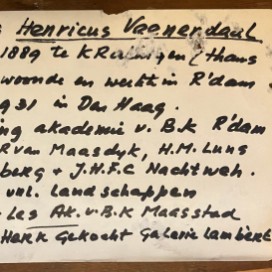 Henricus Vagnerdaul
1889 te Kralingen (thans
woonde en werkte in R'dam
931 in Den Haag.
ing akademie v. B.K R'dam
R van Maasdyk, H.M. Luns
berg + J.H.F.C Nachtweh.
vnl. landschappen
Les Ak. v. B.K Maasstad
Gekocht Galerie Lambert